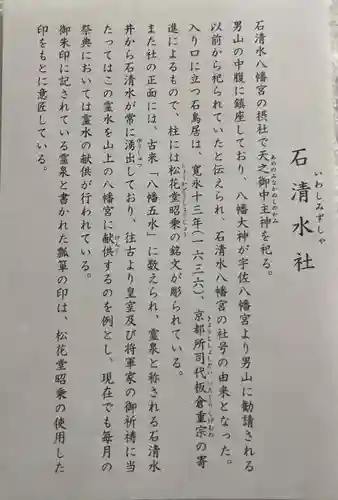 いわしみずしゃ
石清水社
石清水八幡宮の摂社で天之御中主神を祀る。
あめのみなかぬしのかみ
男山の中腹に鎮座しており、八幡大神が宇佐八幡宮より男山に勧請される
以前から祀られていたと伝えられ、石清水八幡宮の社号の由来となった。
入り口に立つ石鳥居は、寛永十三年(一六三六)、京都所司代板倉重宗の寄
きょうとしょしだいいたくらしげむね
進によるもので、柱には松花堂昭乗の銘文が彫られている。
しょうかどうしょうじょう
また社の正面には、古来「八幡五水」に数えられ、霊泉と称される石清水
井から石清水が常に湧出しており、往古より皇室及び将軍家の御祈祷に当
ゆうしゅつ
たってはこの霊水を山上の八幡宮に献供するのを例とし、現在でも毎月の
けんぐ
祭典においては霊水の献供が行われている。
御朱印に記されている霊泉と書かれた瓢箪の印は、松花堂昭乗の使用した
印をもとに意匠している。